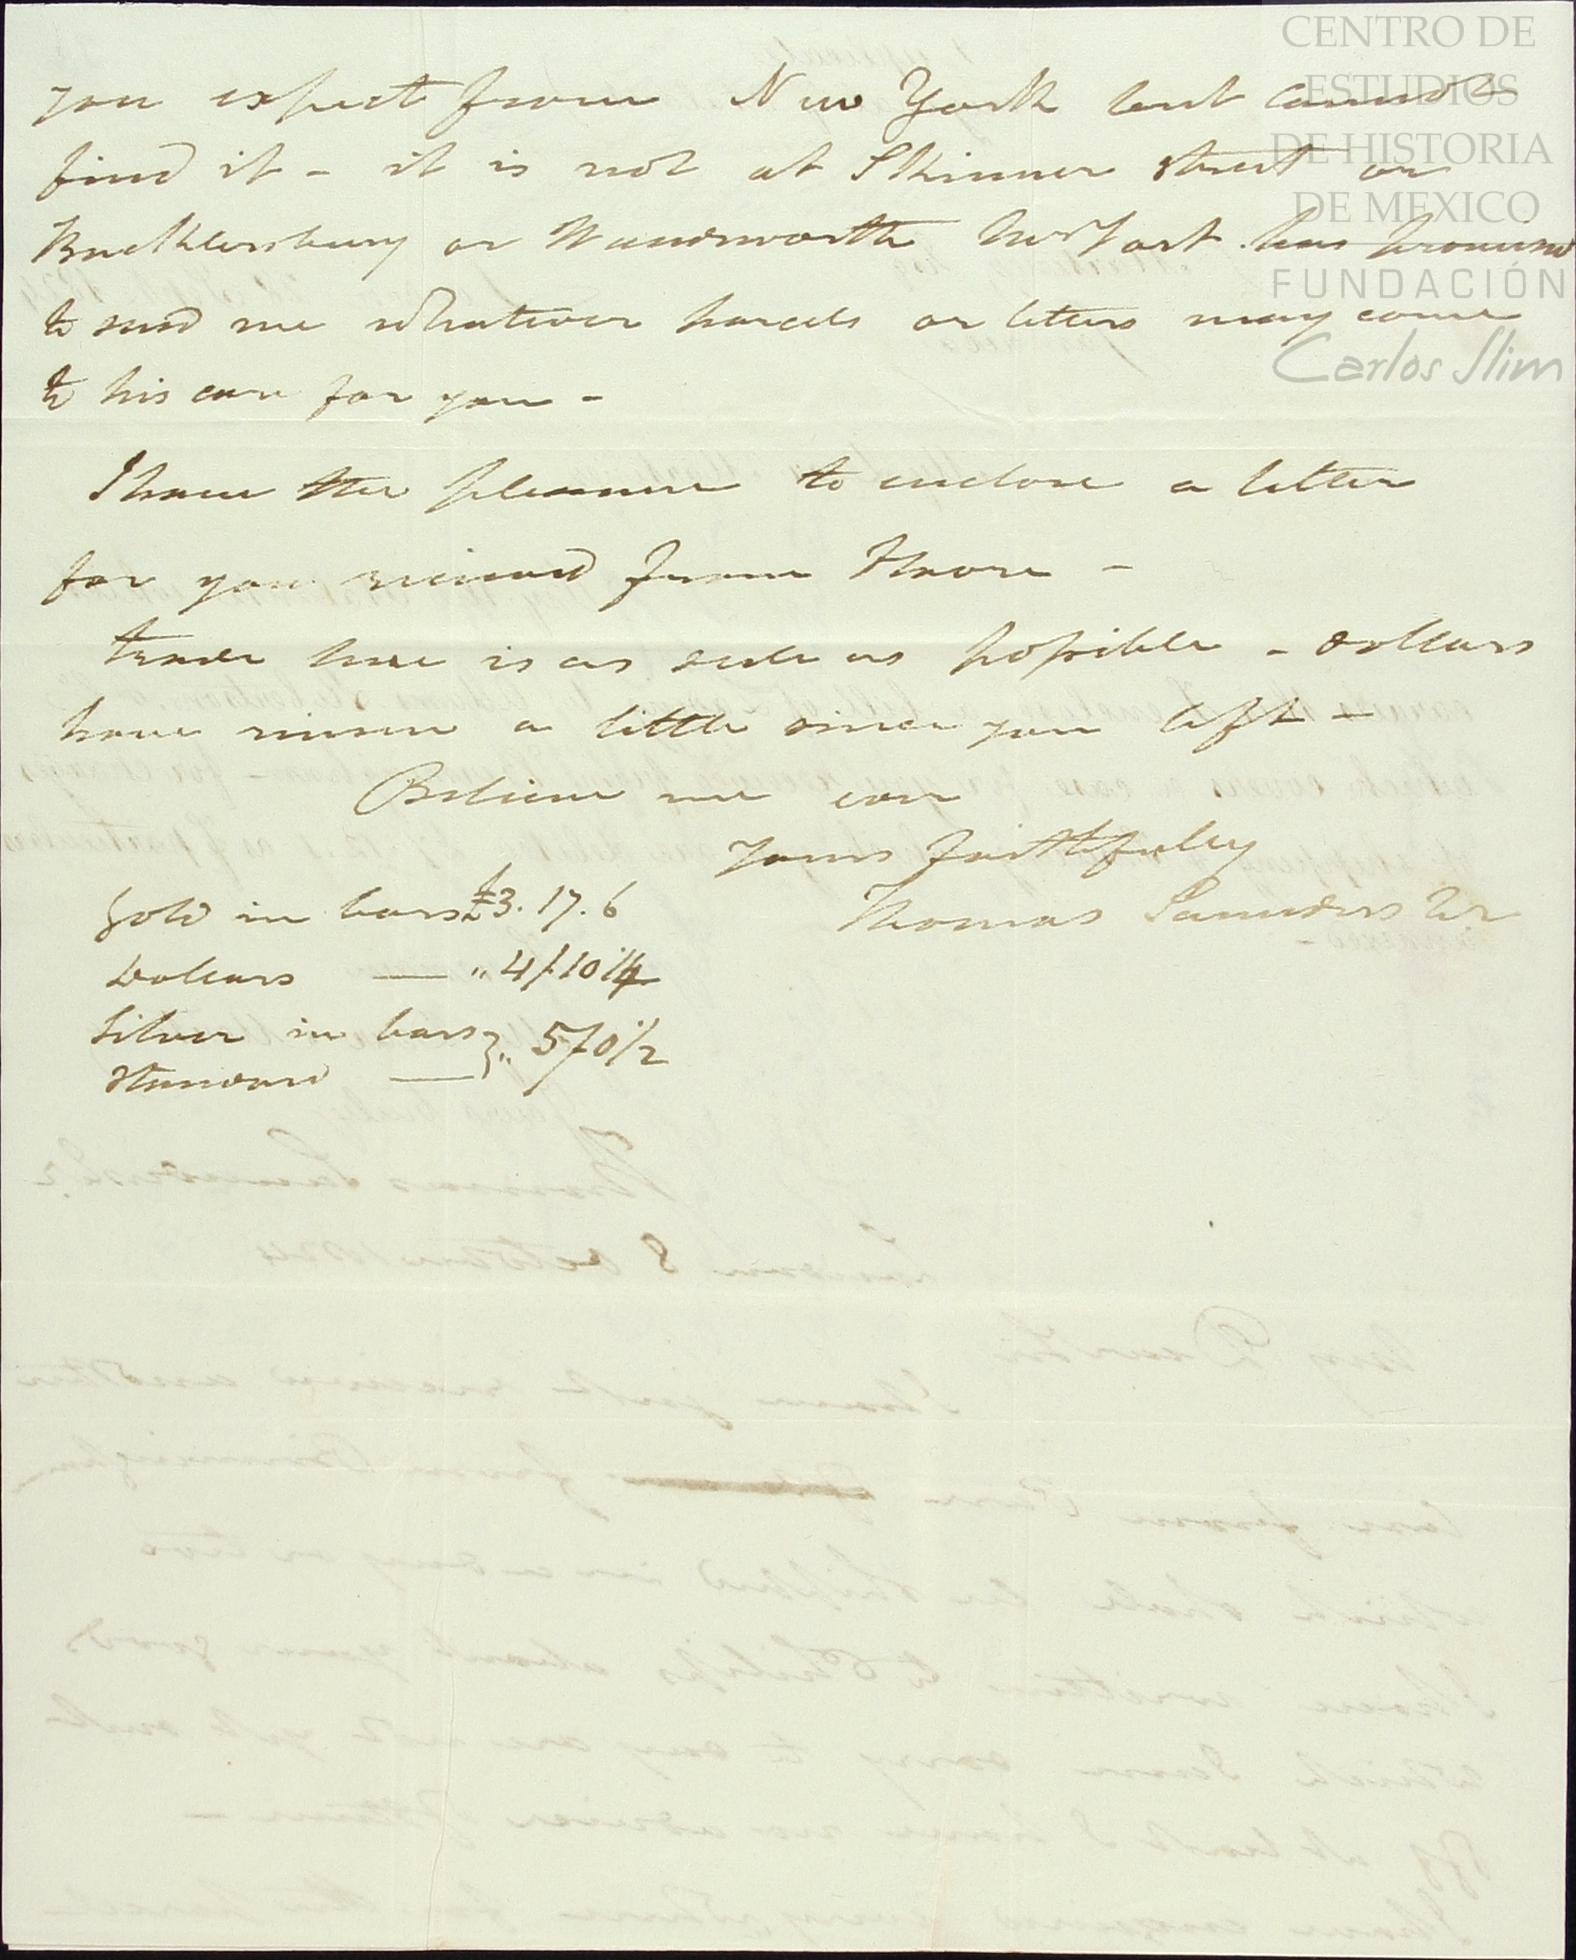 CENTRO DE
ESTUDIOS
DE HISTORIA
DE MEXICO
FUNDACIÓN
Carlos Slim
you expect from New York but cannot
find it - it is not at Skinner street or
Bucklersbury or Wandsworth has promised
to send me whatever parcels or letters may come
to his care for you -
I have the pleasure to enclose a letter
for you received from Moore -
trade here is as as possible - dollars
have risen a little since you left -
Believe me ever
Yours faithfully
Thomas Saunders Jr
Gold in bars £3.17.6
Dollars — " 4/10 1/4
Silver in bars } " 5/0 1/2
Standard —